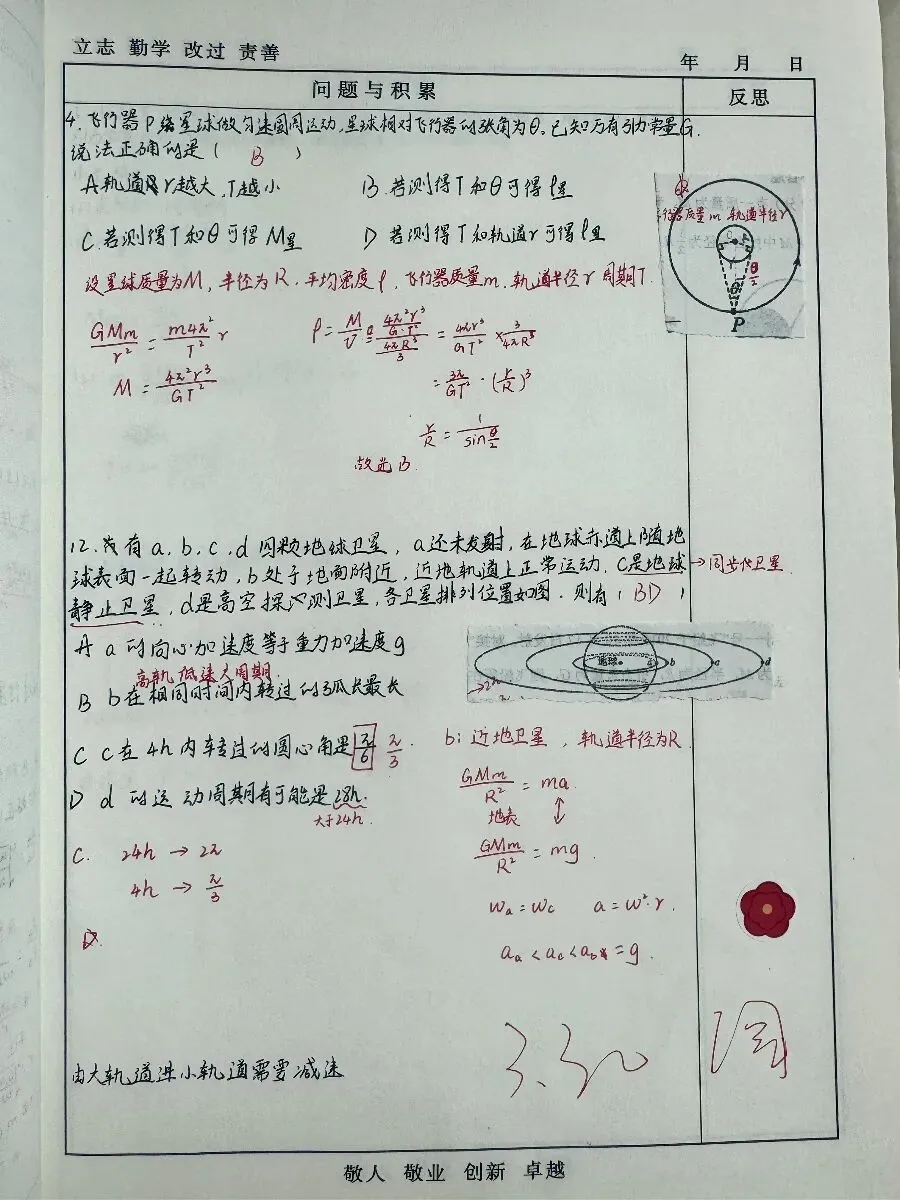 立志 勤学 改过 责善
年 月 日
问题与积累
反思
4. 飞行器P绕星球做匀速圆周运动,星球相对飞行器的张角为θ。已知万有引力常量G.
说法正确的是( B )
A 轨道 r越大,T越小
B. 若测得T和θ可得ρ星
C. 若测得T和θ可得M星
D 若测得T和轨道r可得ρ星
行器质量m,轨道半径r
θ/2
θ
P
设星球质量为M,半径为R,平均密度ρ,飞行器质量m,轨道半径r 周期T.
GMm/r² = m4π²/T² r
M = 4π²r³/GT²
ρ = M/V = (4π²r³/G·T²)/(4πR³/3) = 4πr³/GT² × 3/4πR³
= 3π/GT² · (r/R)³
r/R = 1/sin θ/2
故选B.
12. 现有a,b,c,d四颗地球卫星,a还未发射,在地球赤道上随地
球表面一起转动,b处于地面附近,近地轨道上正常运动,c是地球 → 同步卫星
静止卫星,d是高空探测卫星,各卫星排列位置如图.则有( BD )
A a的向心加速度等于重力加速度g
高轨 低速大周期
B b在相同时间内转过的弧长最长
地球 b d
C c在4h内转过的圆心角是π/6 π/3.
D d的运动周期有可能是28h.
大于24h.
b: 近地卫星,轨道半径为R.
GMm/R² = ma
地表
GMm/R² = mg.
C. 24h → 2π
4h → π/3
ωa = ωc a = ω²·r.
D.
aa < ac < ab = g.
由大轨道进小轨道需要减速
3.30
阅
敬人 敬业 创新 卓越